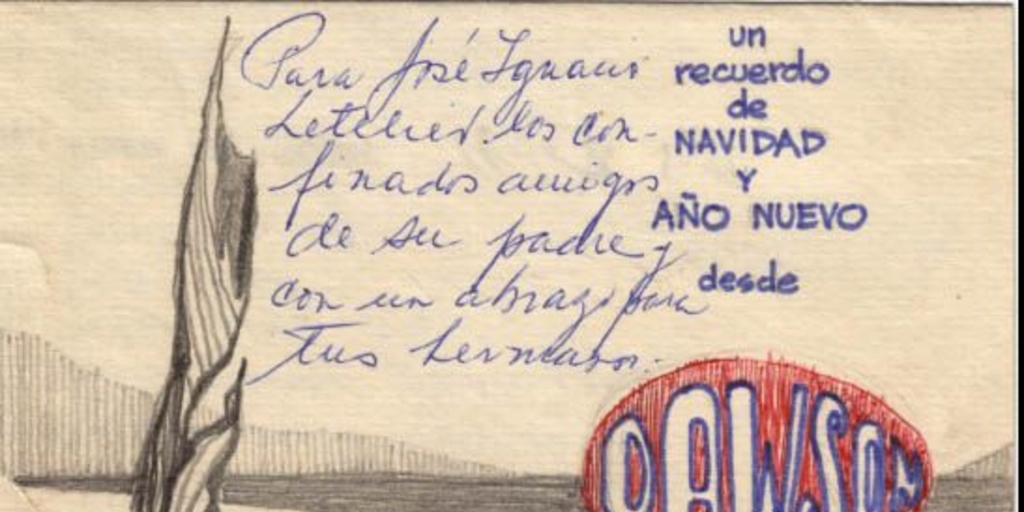 Para José Ignacio
Letelier. los con-
finados amigos
de su padre y
con un abrazo para
tus hermanos.
un
recuerdo
de
NAVIDAD
Y
AÑO NUEVO
desde
DAWSON